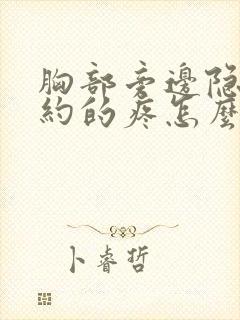 胸部旁邊隐
約的疼怎麼
卜睿哲